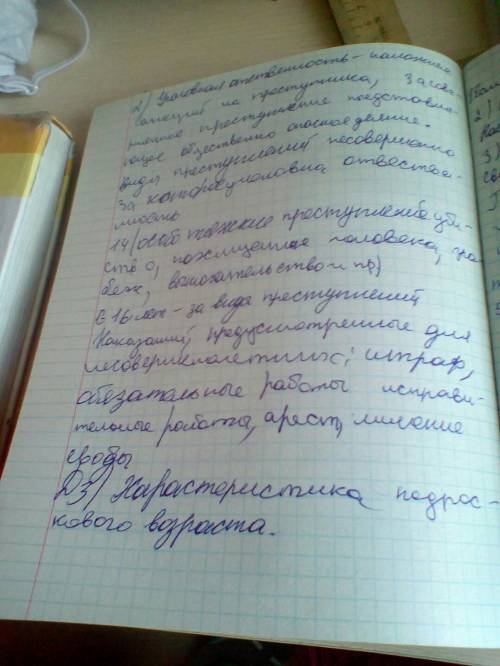 2) Уголовная ответственность - наложение
санкций на преступника, за совер-
шенное преступление представля-
ющее общественно опасное деяние.
виды преступлений несовершенно
за которые уголовна ответствен-
ность
14 (особо тяжкие преступление уби-
ств о, похищение человека, гра
беж, вымогательство и тд)
С 16 лет - за вида преступлений
Наказаний предусмотренные для
несовершеннолетних: штраф,
обязательные работы исправи-
тельные работы, арест, лишение
свобы
ДЗ) Характеристика подрос-
кового возраста.
2)
3)